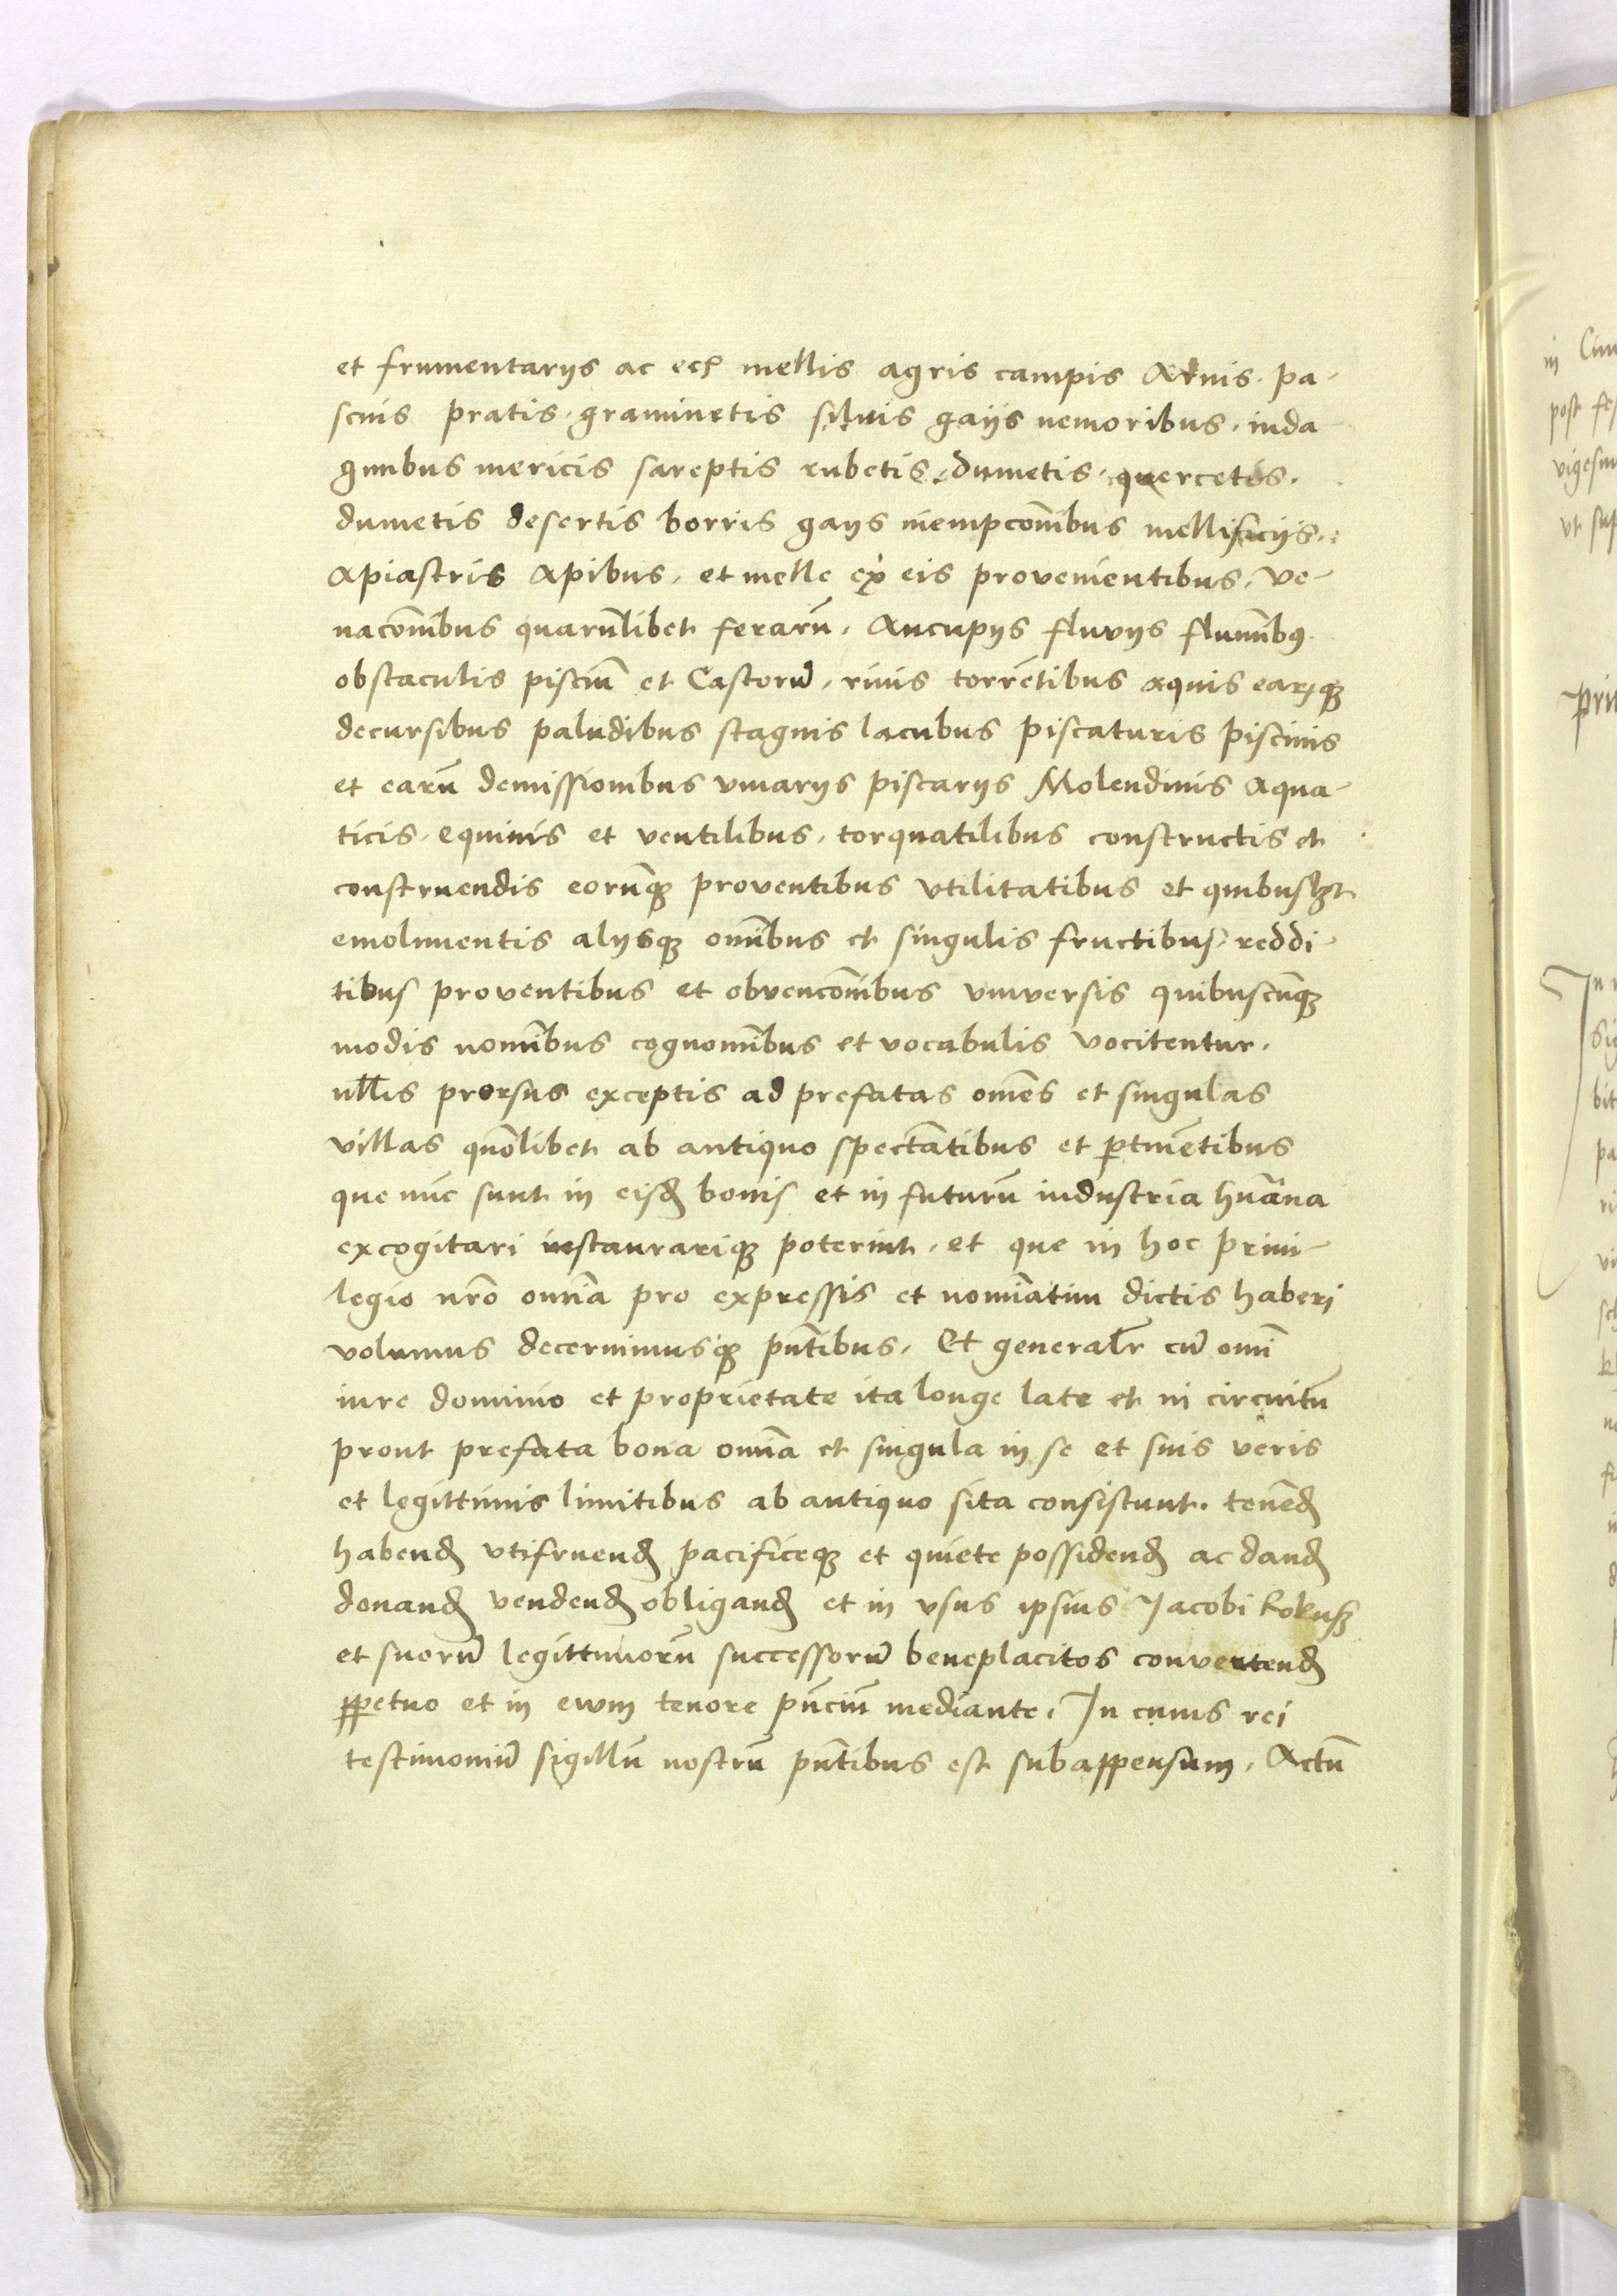 et frumentarijs ac ecꝫ mellis agris campis Aruis · pa-
scuis pratis · graminetis siluis gaijs nemoribus · inda
ginibus mericis sareptis rubetis · dumetis · quercetis ·
dumetis desertis borris gays niempcoībus mellificijs ·
Apiastris Apibus · et melle ex eis provenientibus · Ve-
nacoībus quarūlibet ferarū · Aucupijs fluvijs flumībꝰ
obstaculis pisciū et Castorū · riuis torrētibus aquis earꝫqꝫ
decursibus paludibus stagnis lacubus piscaturis piscinis
et earū demissionibus vivarijs piscarijs Molendinis Aqua-
ticis · equinis et ventilibus · torquatilibus constructis et
construendis eorūqꝫ proventibus vtilitatibus et quibuslꝫt
emolumentis alijsqꝫ omībus et singulis fructibus · reddi-
tibus proventibus et obvencoībus vniversis quibuscūqꝫ
modis nomībus cognomībus et vocabulis vocitentur ·
nłłis prorsus exceptis ad prefatas omēs et singulas
villas quōlibet ab antiquo spectātibus et ꝑtinētibus
que nūc sunt in eisđ bonis et in futurū industria hūana
excogitari instaurariqꝫ poterint · et que in hoc priui-
legio nrō omīa pro expressis et nomīatim dictis haberi
volumus decernimusqꝫ pn̄tibus · Et generałr cū omī
iure dominio et proprietate ita longe late et in circuitu
prout prefata bona omīa et singula in se et suis veris
et legittimis limitibus ab antiquo sita consistunt · tenēđ
habenđ vtifruenđ pacificeqꝫ et quiete possidenđ ac danđ
donanđ vendenđ obliganđ et in vsus ipsius Jacobi kokusꝫ
et suorū legittimorū successorū beneplacitos convertenđ
ꝑpetuo et in ewm tenore pn̄ciū mediante · In cuius rei
testimoniū sigillū nostrū pn̄tibus est subappensum · Actū